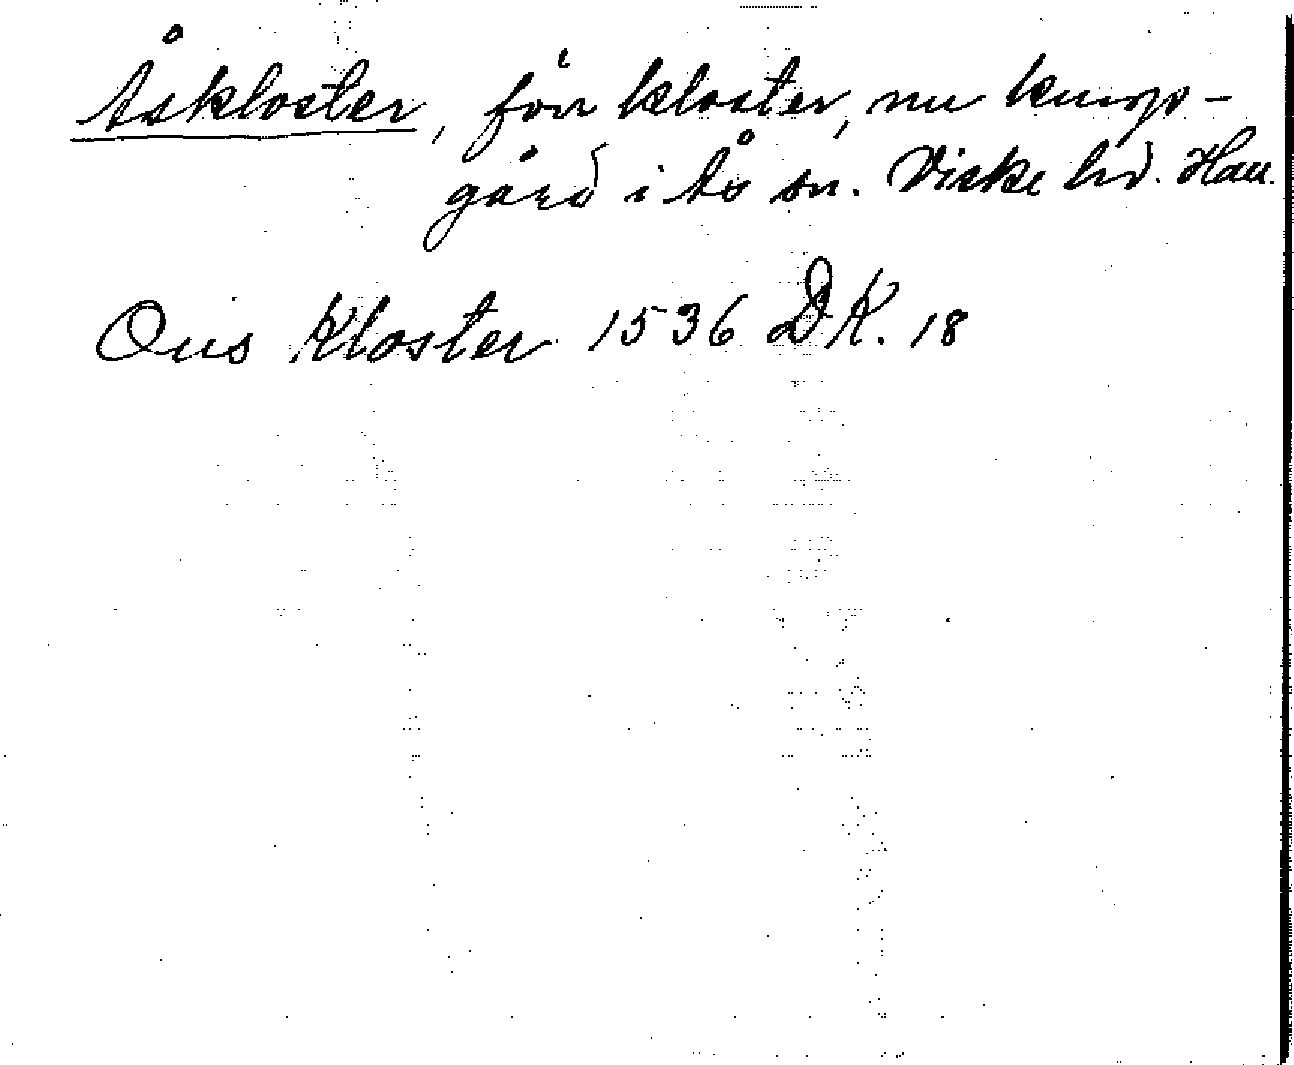 Åskloster, förr kloster, nu kungs-
gård i Ås sn. Viske hd. Hall.
Ous Kloster 1536 DK. 18